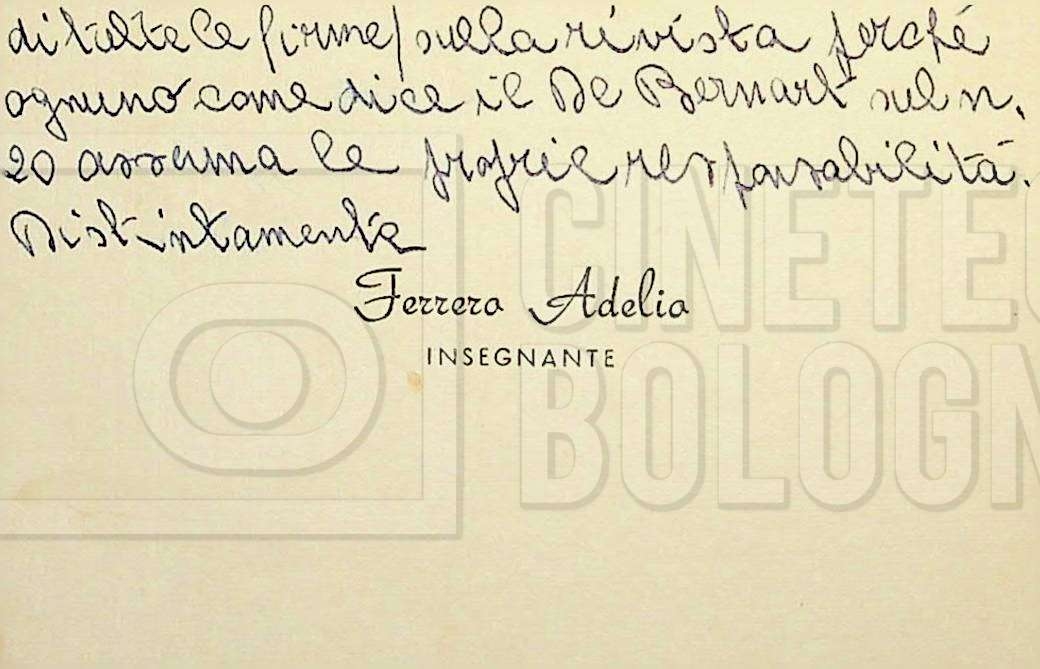 di tutte le firme) sulla rivista perché
ognuno come dice il De Bernart sul n.
20 assuma le proprie responsabilità.
Distintamente
Ferrero Adelio
INSEGNANTE
CINETEC
BOLOGN